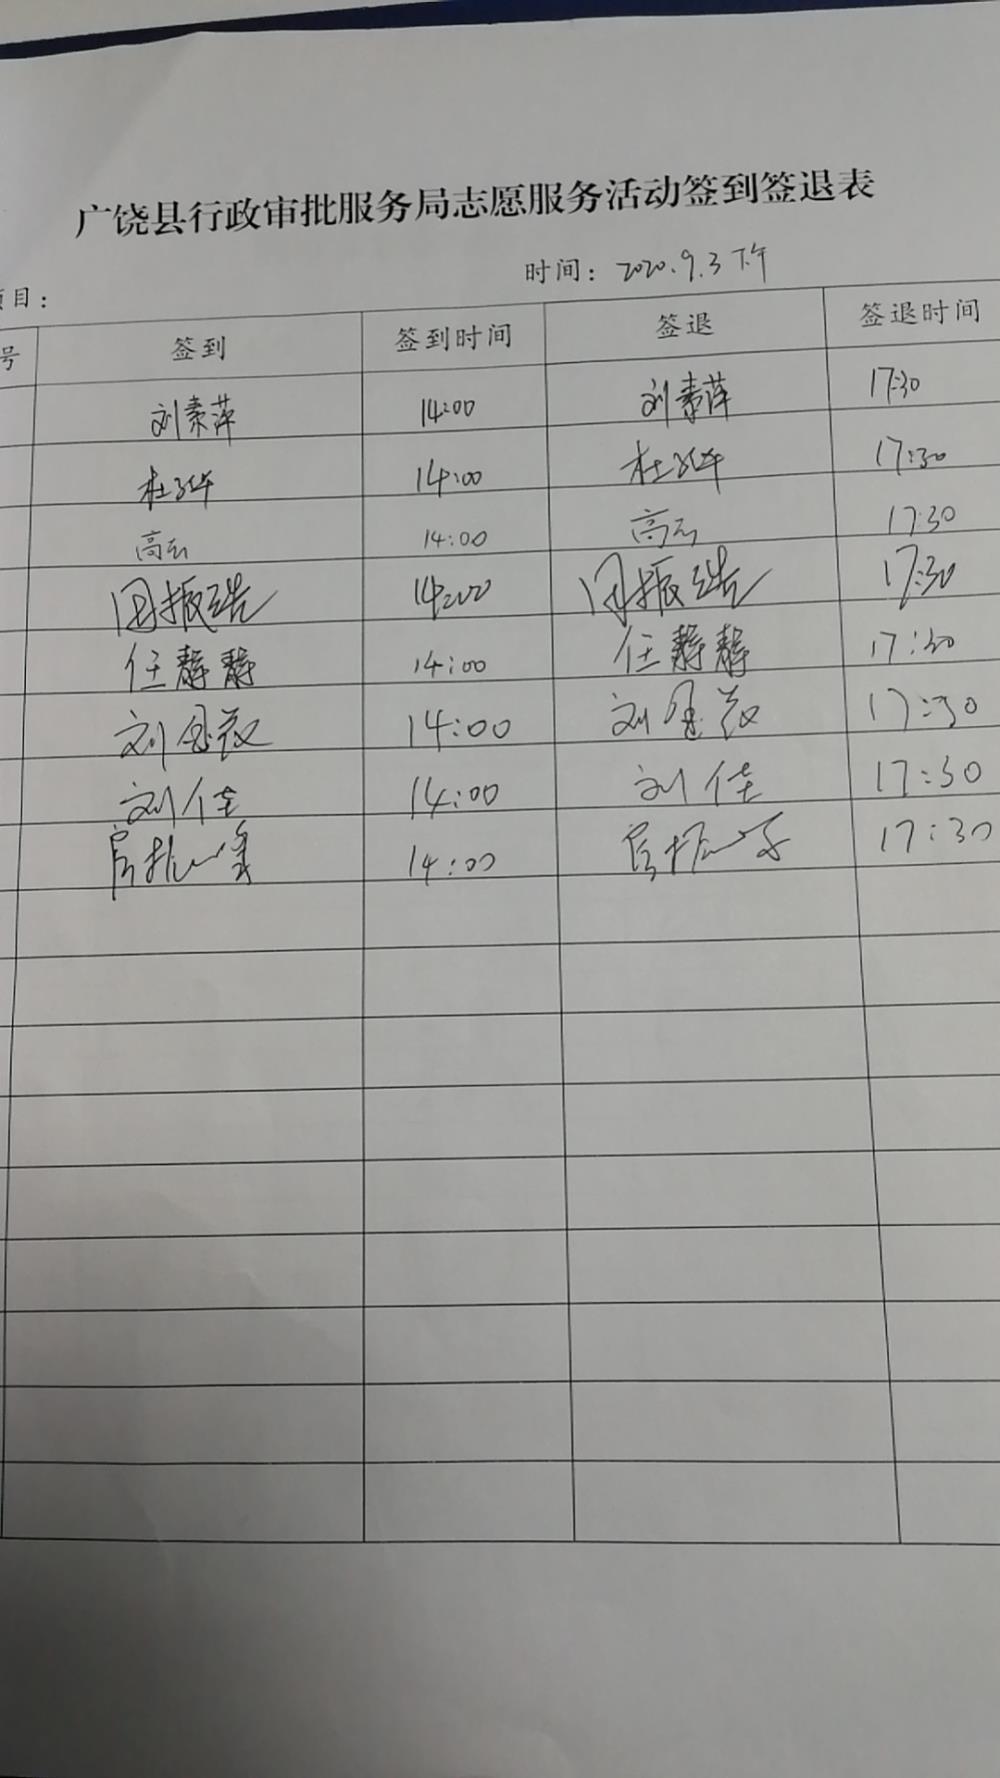 广饶县行政审批服务局志愿服务活动签到签退表
时间：2020.9.3下午
项目：
号 签到 签到时间 签退 签退时间
刘素萍 14:00 刘素萍 17:30
杜 14:00 杜 17:30
高云 14:00 高云 17:30
周振浩 14:00 周振浩 17:30
任静静 14:00 任静静 17:30
刘 14:00 刘 17:30
刘佳 14:00 刘佳 17:30
14:00 17:30